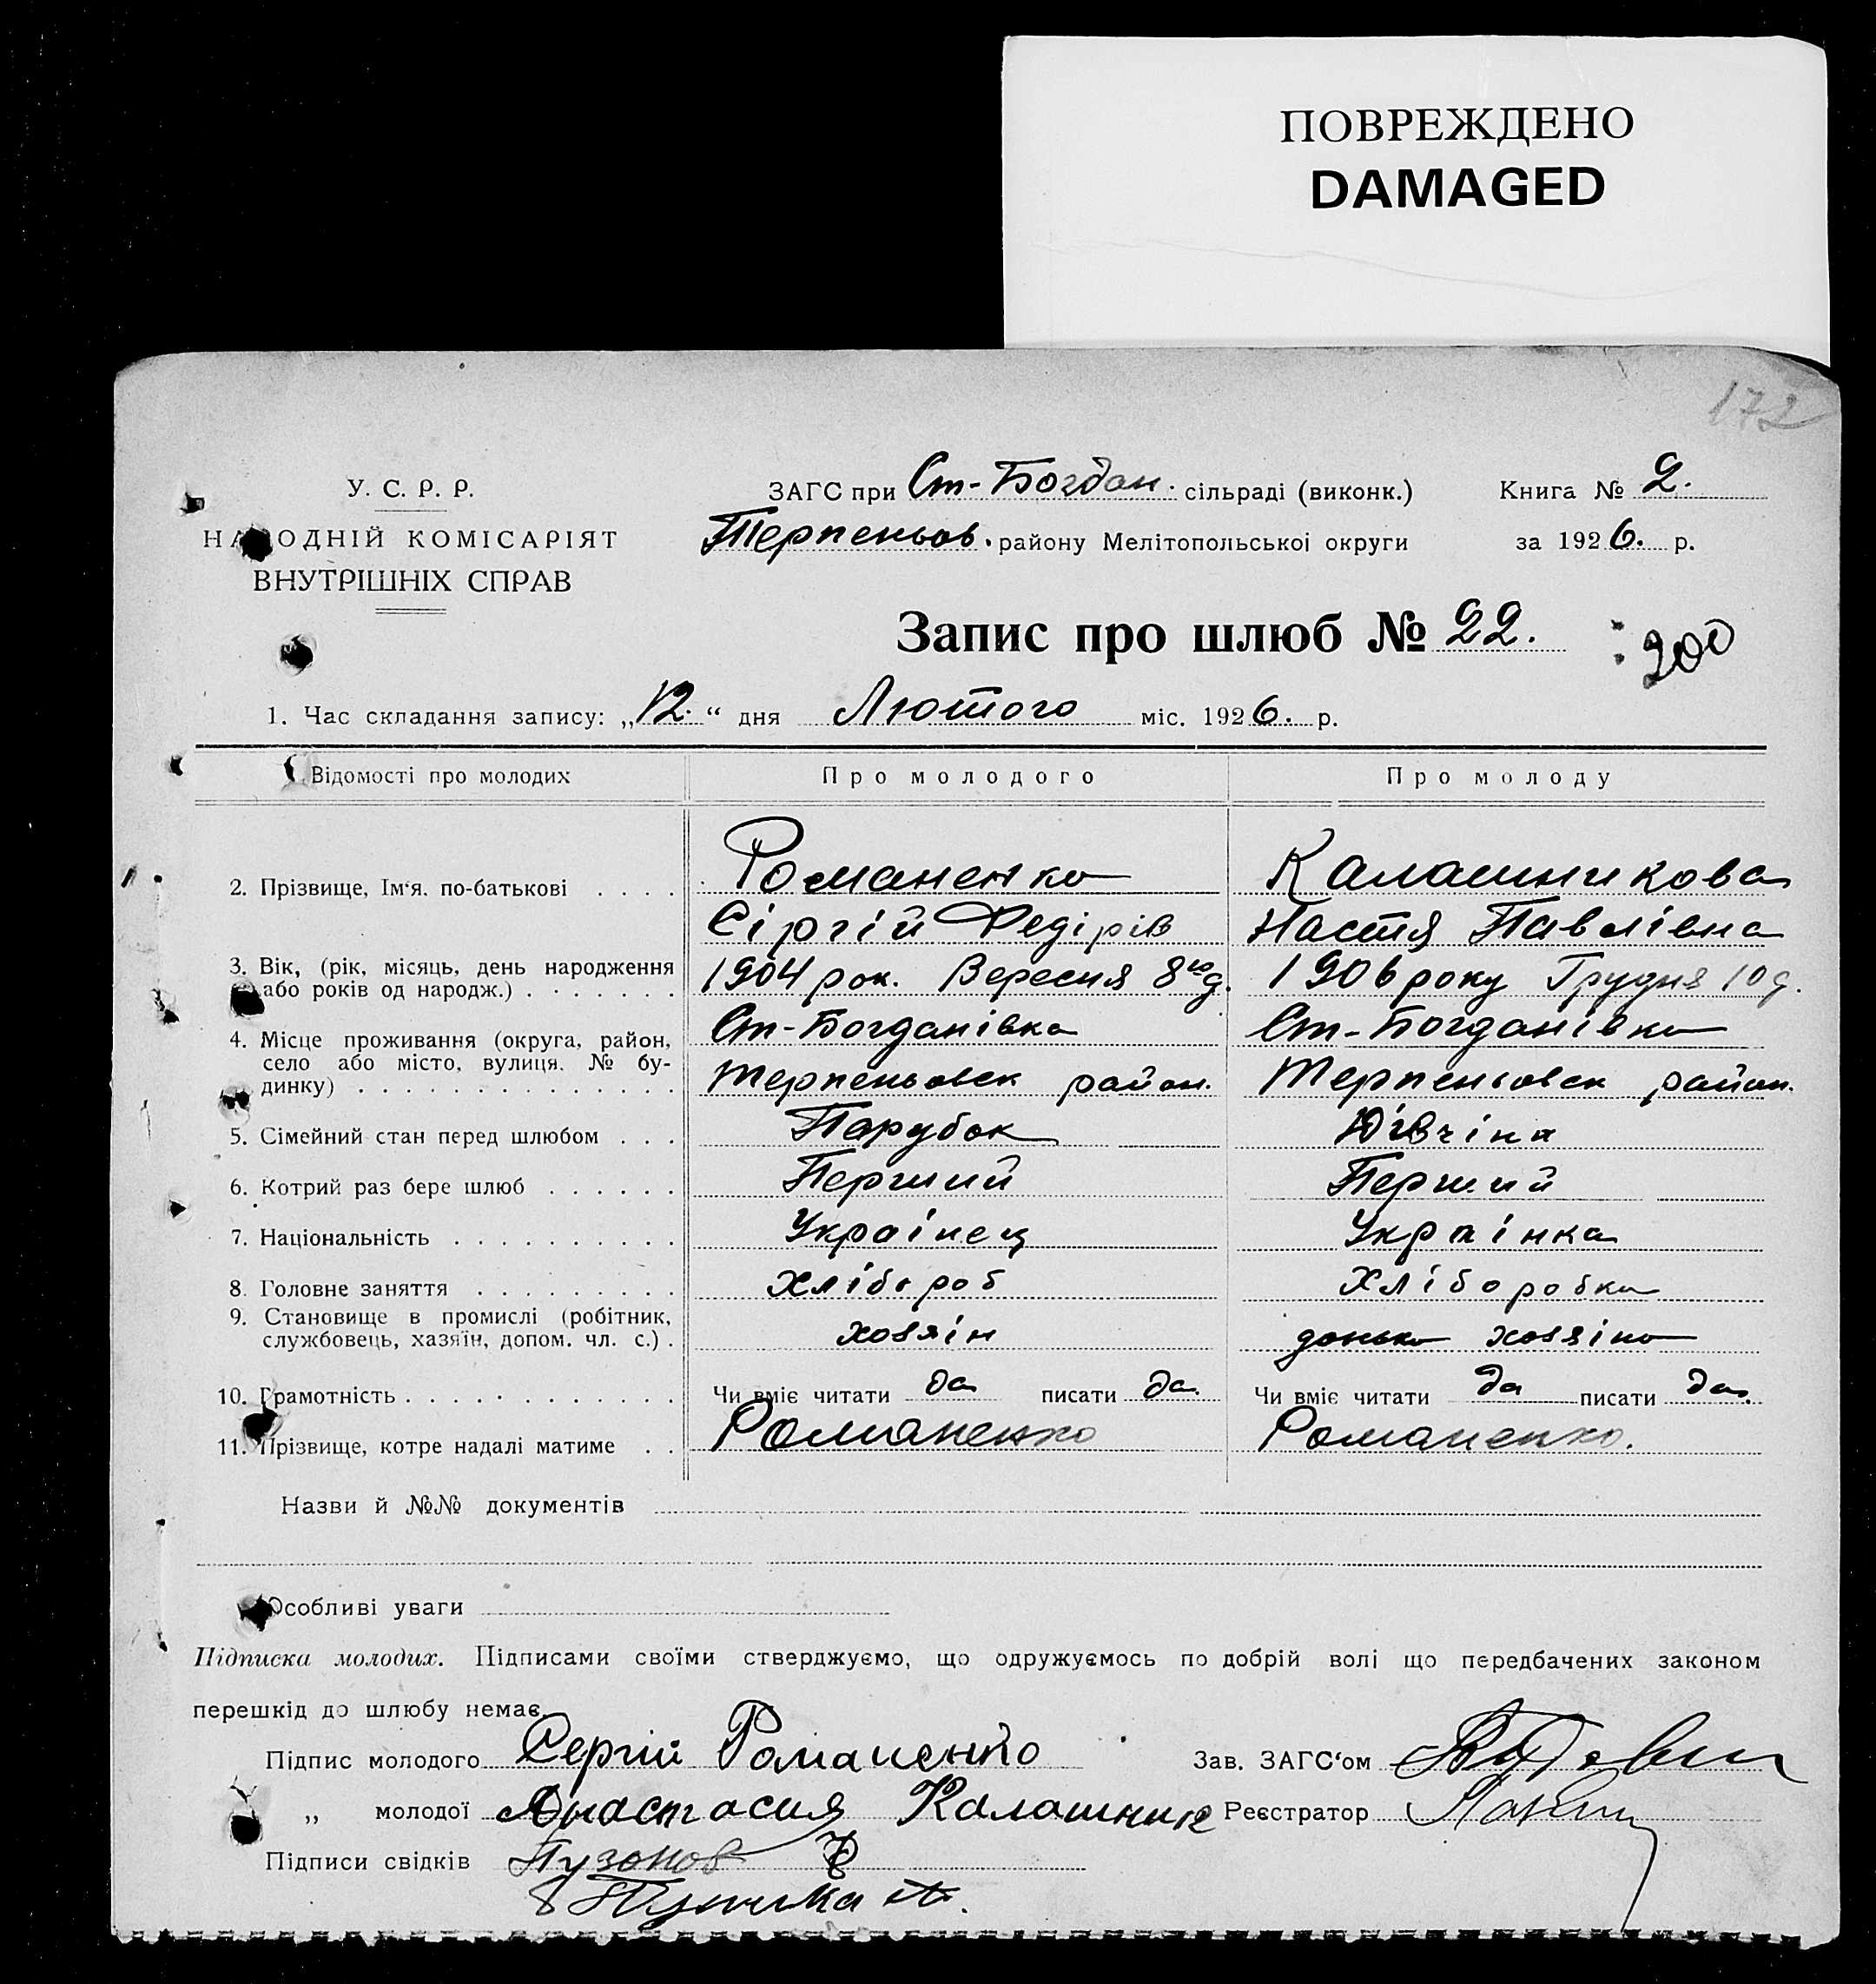 ПОВРЕЖДЕНО
DAMAGED
172
У. С. Р. Р.
НАРОДНІЙ КОМІСАРІЯТ
ВНУТРІШНІХ СПРАВ
ЗАГС при Ст-Богдан. сільраді (виконк.)
Терпеньов. району Мелітопольської округи
Книга № 2.
за 1926. р.
Запис про шлюб № 22.
200
1. Час складання запису: „12“ дня Лютого міс. 1926. р.
Відомості про молодих Про молодого Про молоду
2. Прізвище, Ім'я. по-батькові . . . . Романенко Калашникова
Сіргій Федірів Настя Павлівна
3. Вік, (рік, місяць, день народження 1904 рок. Вересня 8го д. 1906 року Грудня 10 д.
або років од народж.) . . . . . . .
4. Місце проживання (округа, район, Ст-Богданівка Ст-Богданівка
село або місто, вулиця. № бу-
динку) . . . . . . . . . . . . . Терпеньовск район. Терпеньовск район.
5. Сімейний стан перед шлюбом . . . Парубок Дівчіна
6. Котрий раз бере шлюб . . . . . . Перший Перший
7. Національність . . . . . . . . . . Украінец Украінка
8. Головне заняття . . . . . . . . . Хлібороб Хліборобка
9. Становище в промислі (робітник,
службовець, хазяїн, допом. чл. с.) . хозяін донька хозяіна
10. Грамотність . . . . . . . . . . . . Чи вміє читати да писати да. Чи вміє читати да писати да.
11. Прізвище, котре надалі матиме . . Романенко Романенко.
Назви й №№ документів
Особливі уваги
Підписка молодих. Підписами своїми стверджуємо, що одружуємось по добрій волі що передбачених законом
перешкід до шлюбу немає.
Підпис молодого Сергій Романенко Зав. ЗАГС'ом
„ молодої Анастасия Калашник Реєстратор
Підписи свідків Пузанов